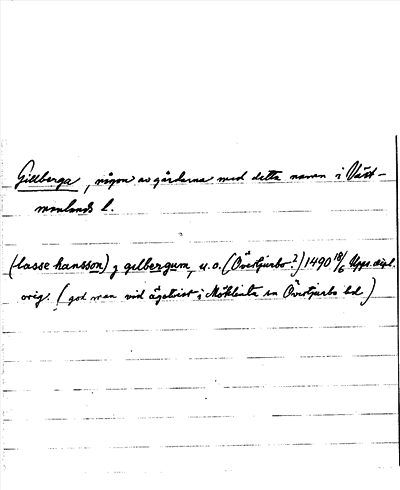 Gillberga, någon av gårdarna med detta namn i Väst-
manlands l.
(lasse hansson) j gilbergum, u.o. (Övertjurbo?) 1490 18/6 Upps. dipl.
orig. (god man vid ägotvist i Möklinta sn Övertjurbo hd)